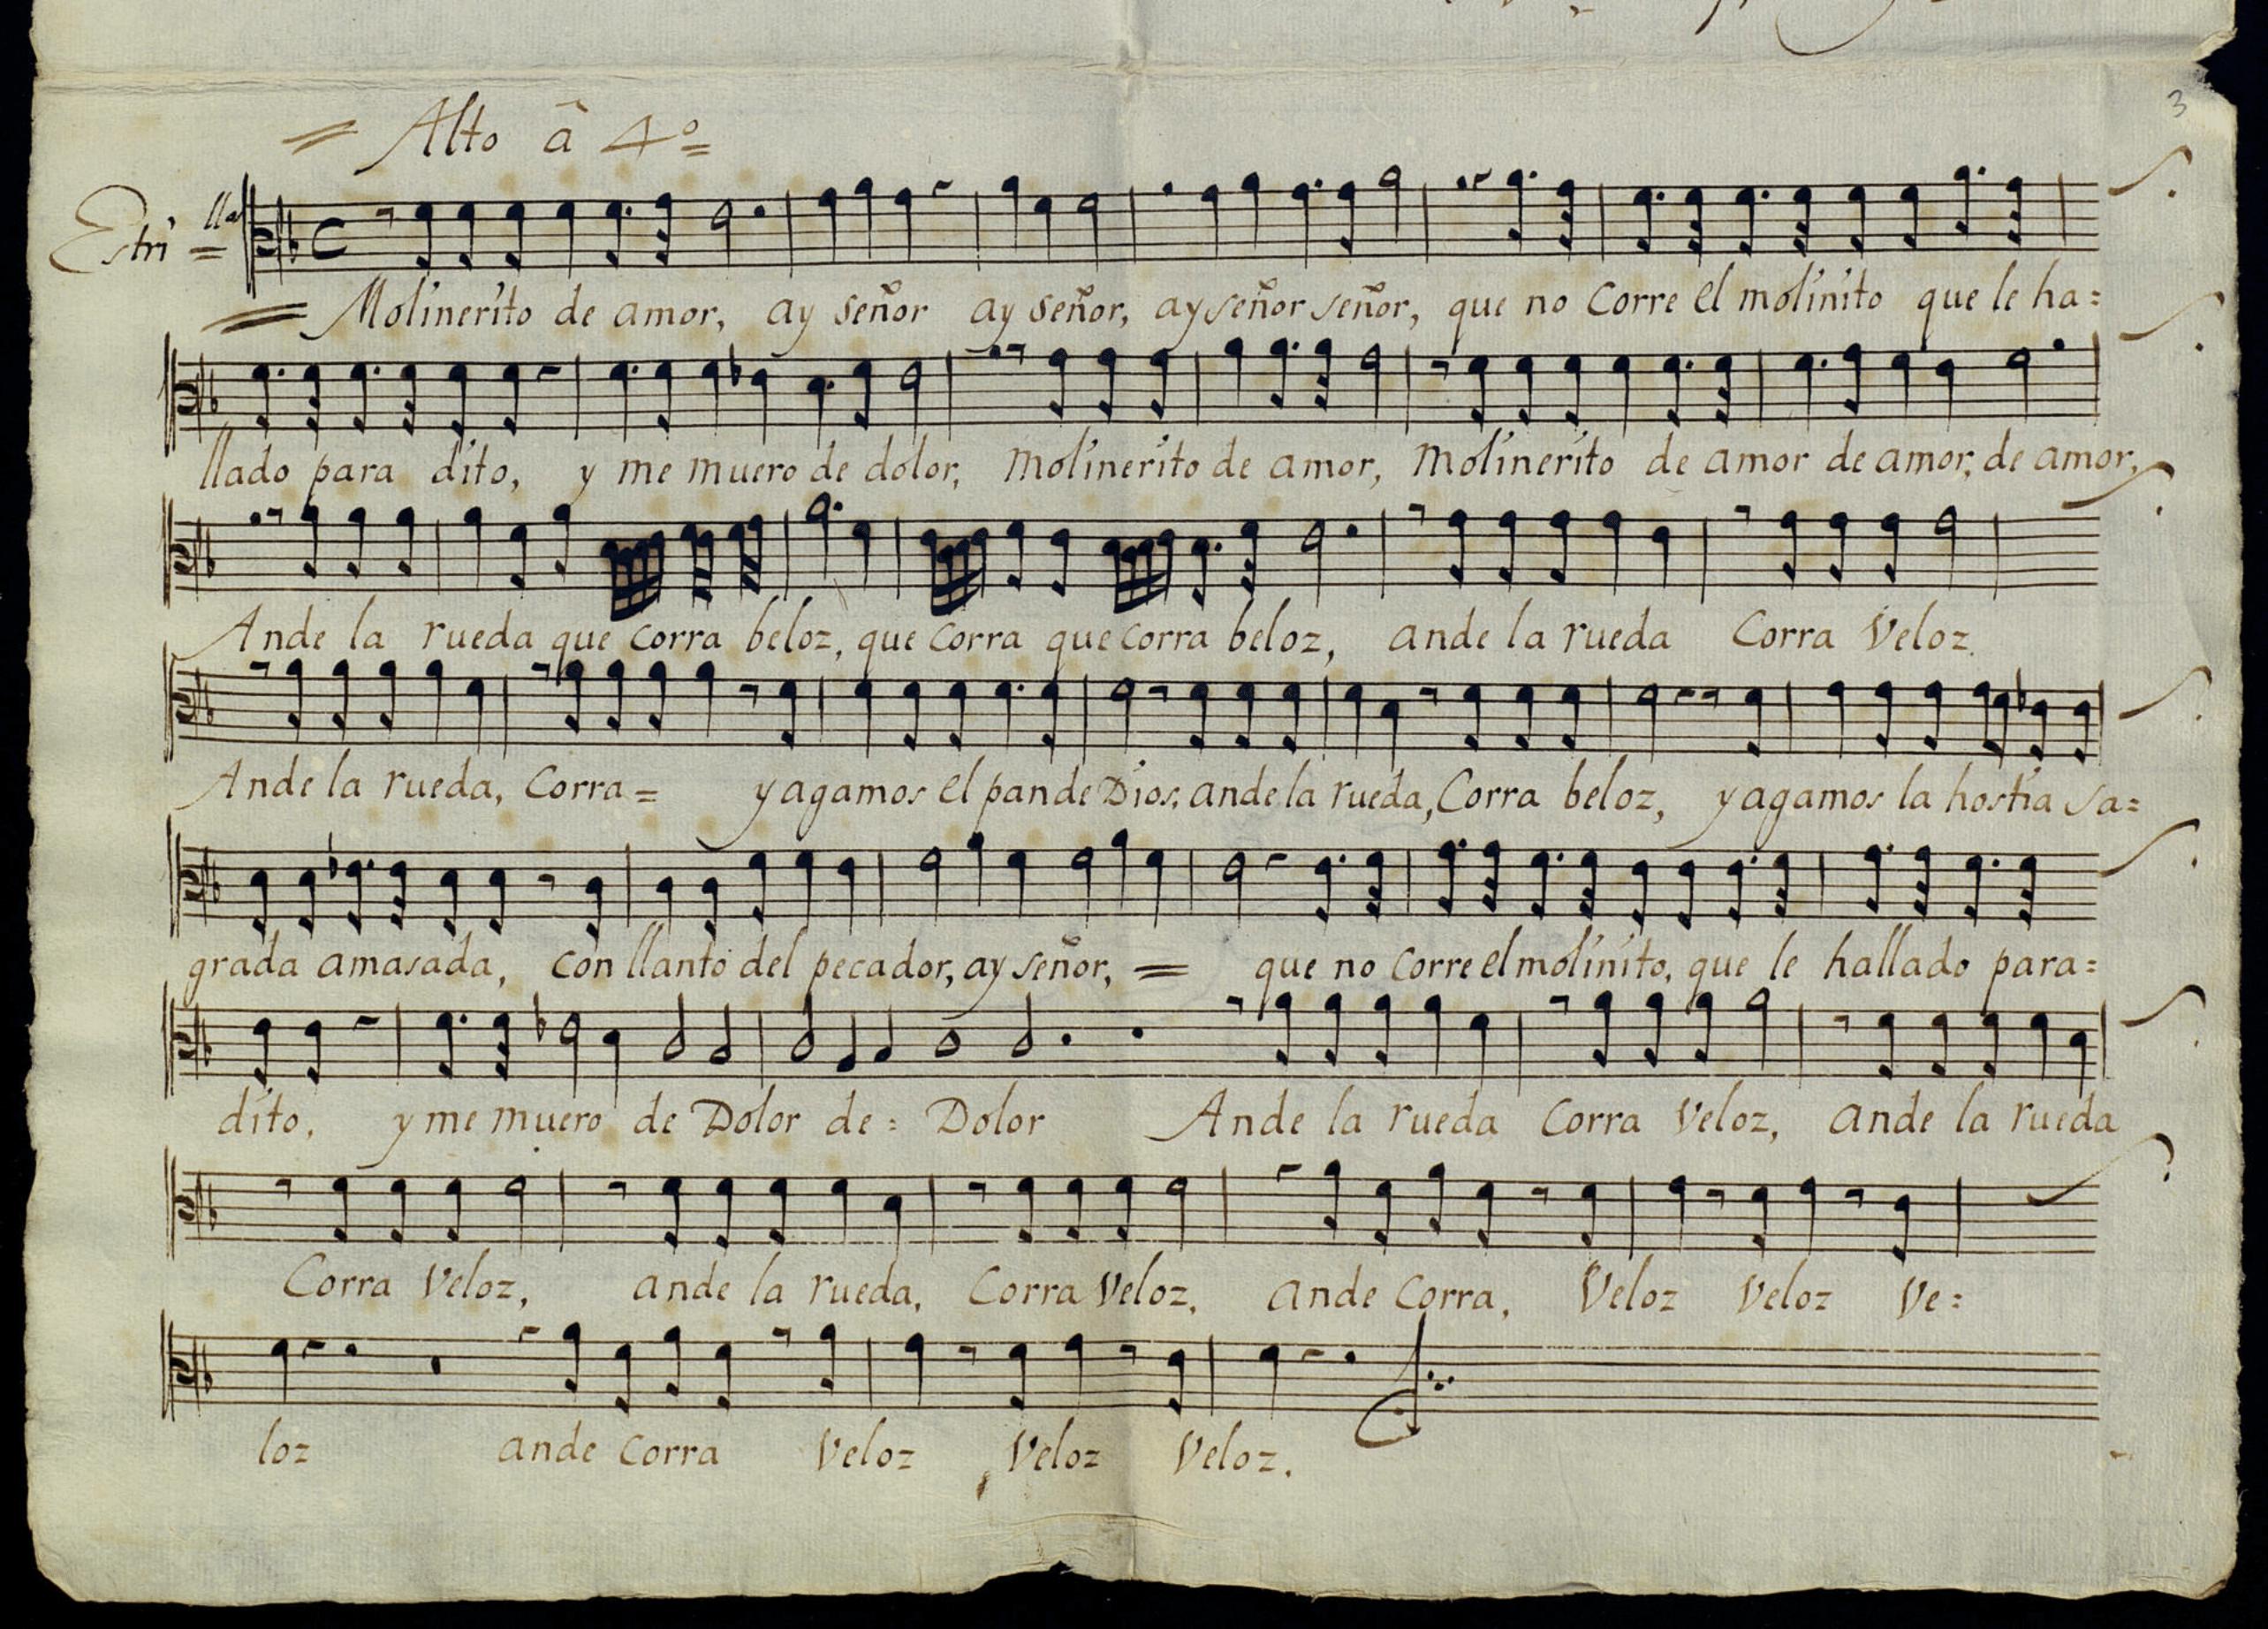 3
= Alto â 4º =
Estriˡˡᵃ =
= Molinerito de amor, ay señor ay señor, ay señor señor, que no Corre el molinito que le ha=
llado para dito, y me muero de dolor, Molinerito de amor, Molinerito de amor de amor, de amor,
Ande la rueda que corra beloz, que corra que corra beloz, ande la rueda Corra Veloz.
Ande la rueda, Corra = y agamos el pan de Dios, ande la rueda, Corra beloz, y agamos la hostia sa=
grada amasada, con llanto del pecador, ay señor, = que no corre el molinito, que le hallado para=
dito, y me muero de Dolor de = Dolor Ande la rueda Corra Veloz, ande la rueda
Corra Veloz, ande la rueda, Corra Veloz, ande Corra, Veloz Veloz Ve=
loz ande Corra Veloz Veloz Veloz.